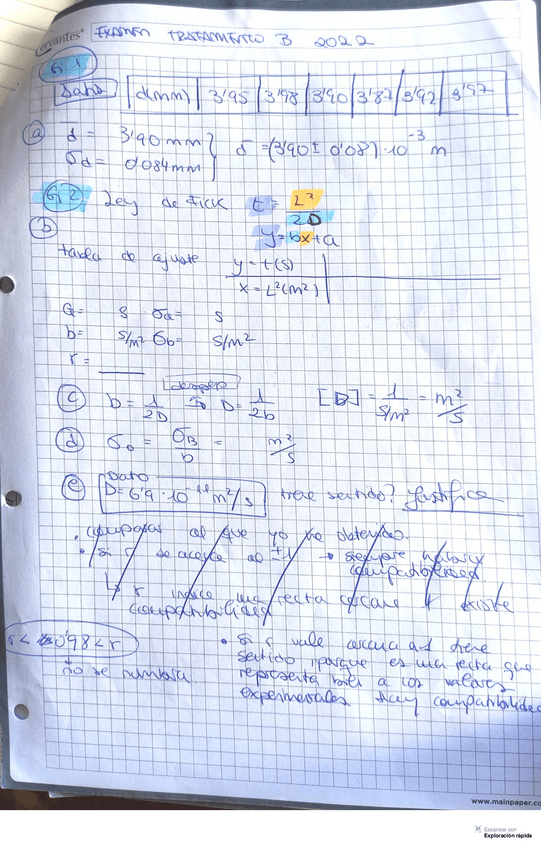 cervantes EXAMEN TRATAMIENTO B 2022
G 1
Datos d(mm) 3'95 3'98 3'90 3'87 3'92 3'97
a d̄ = 3'90 mm
σd = 0'084 mm
d̄ = (3'90 ± 0'08) · 10⁻³ m
G 2 Ley de Fick t = L²/2D
y = bx + a
b
tabla de ajuste y = t(s)
x = L²(m²)
a = s σa = s
b = s/m² σb = s/m²
r =
despejo
c b = 1/2D D = 1/2b [D] = 1/s/m² = m²/s
d σD = σB/b = m²/s
Dato
e D = 6'9 · 10⁻¹¹ m²/s tiene sentido? Justifica
· comparar al que yo he obtenido.
· si r se acerca al ±1 → siempre
compatibilidad
↳ r indica una recta
compatibilidad
0'98 < r
no se numbra
• Si r vale cercana a 1 tiene
sentido porque es una recta que
representa bien a los valores
experimentales. Hay compatibilidad
www.mainpaper.com
Escanear con
Exploración rápida